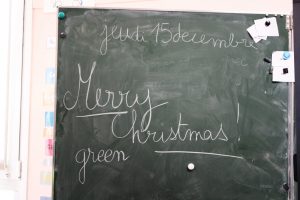 jeudi 15 decembre
Merry
Christmas!
green